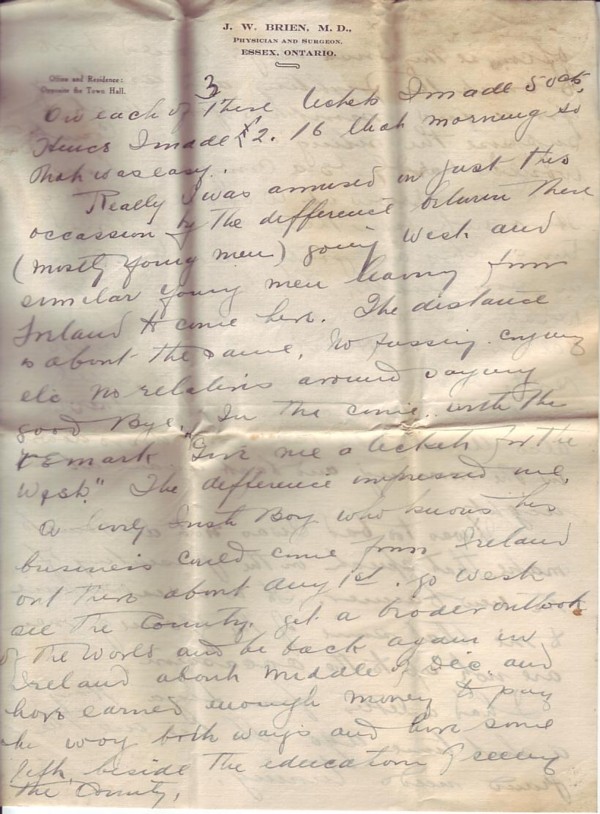 J. W. BRIEN, M. D.,
PHYSICIAN AND SURGEON.
ESSEX, ONTARIO.
Office and Residence:
Opposite the Town Hall.
3
On each of these tickets I made 50 cts,
Hence I made $2.16 that morning so
that was easy.
Really I was amused on just this
occassion by the difference between these
(mostly young men) going west and
similar young men leaving from
Ireland to come here. The distance
is about the same, No fussing crying
etc. no relations around saying
good Bye. In they come with the
remark "Give me a ticket for the
West." The difference impressed me.
A lively Irish Boy who knows his
business could come from Ireland
out there about Aug 1st. go West
see the Country. get a broder outlook
of the World and be back again in
Ireland about middle of Dec. and
have earned enough money to pay
his way both ways and have some
left, beside the education of seeing
the County.